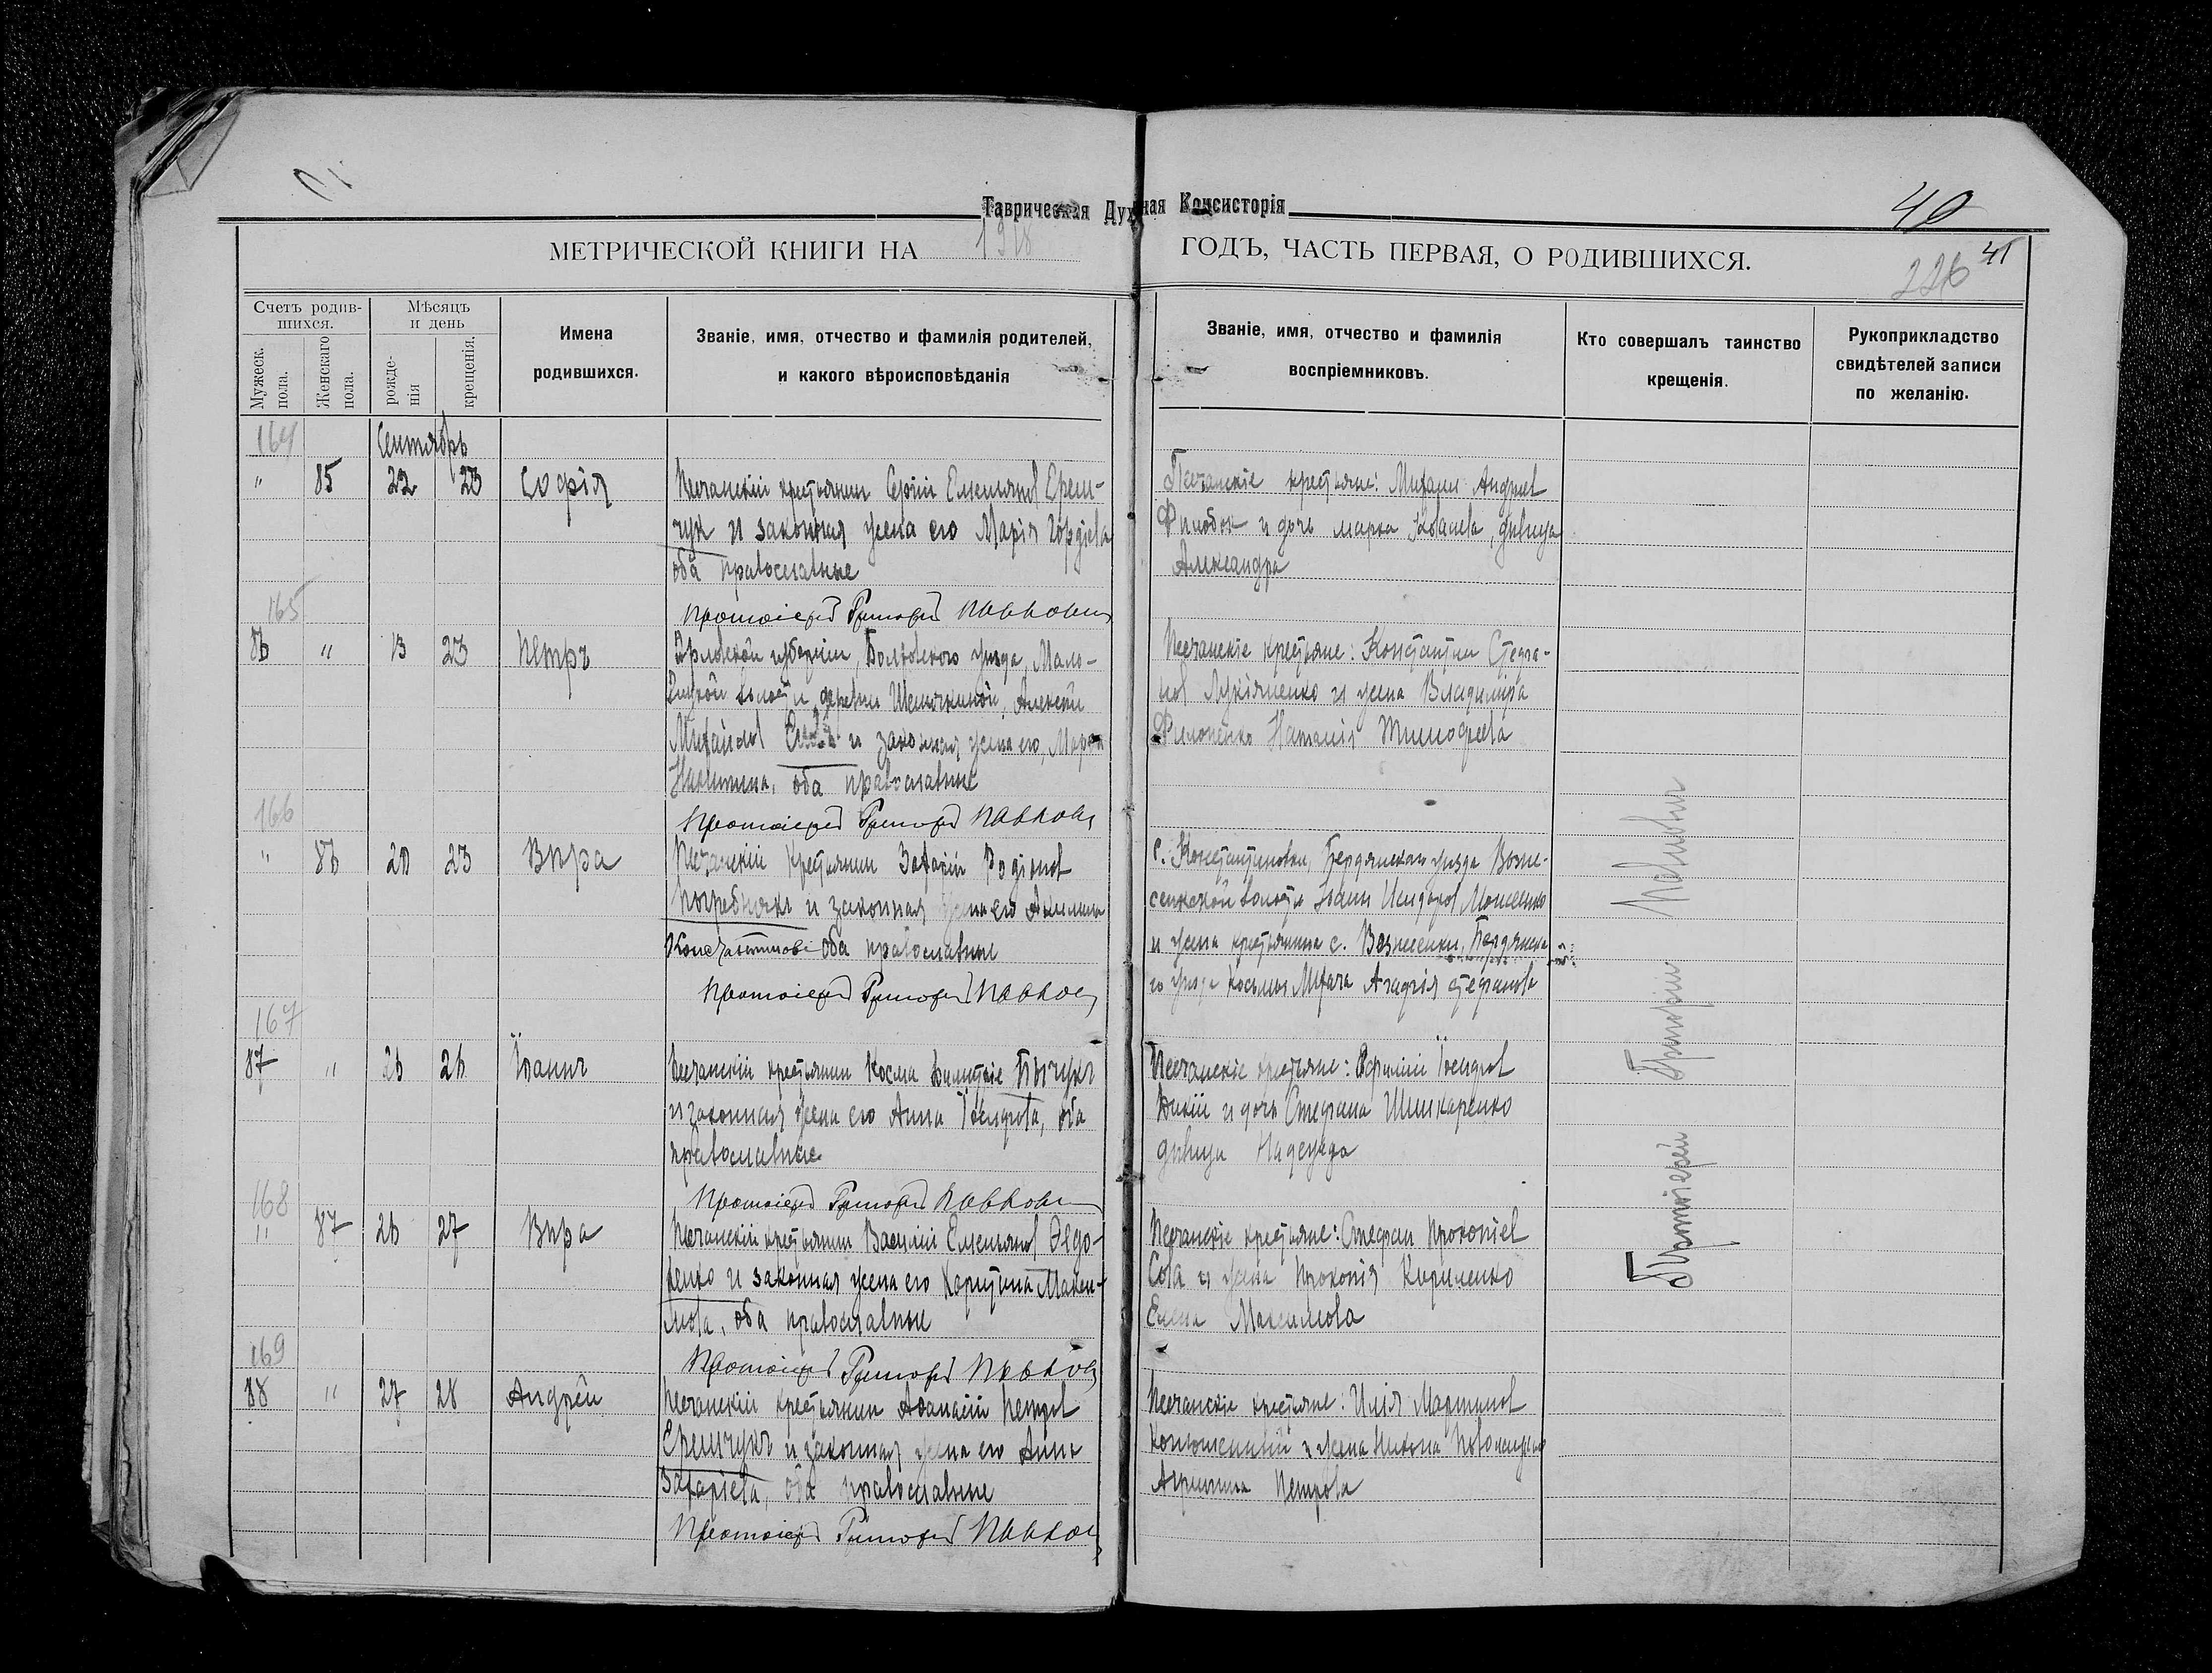 Таврическая Духовная Консисторія
40
МЕТРИЧЕСКОЙ КНИГИ НА 1918 ГОДЪ, ЧАСТЬ ПЕРВАЯ, О РОДИВШИХСЯ.
41
226
Счетъ родив-
шихся.
Мужеск.
пола.
Женскаго
пола.
Мѣсяцъ
и день
рожде-
нія
крещенія.
Имена
родившихся.
Званіе, имя, отчество и фамилія родителей,
и какого вѣроисповѣданія
Званіе, имя, отчество и фамилія
воспріемниковъ.
Кто совершалъ таинство
крещенія.
Рукоприкладство
свидѣтелей записи
по желанію.
164
Сентябрь
" 85 22 23 Софія
Песчанскій крестьянин Сергій Емельянов Ерем-
чук и законная жена его Марія Гордіева
оба православные
Протоіерей Григорій
Песчанскіе крестьяне: Михаил Андреев
и дочь Марка девица
Александра
165
86 " 13 23 Петръ
Орловской губерніи, Болховского уезда, Мало-
волости деревни Алексей
Михайлов и законная жена его, Марфа
Никитина, оба православные
Протоіерей Григорій
Песчанскіе крестьяне: Константин Стефа-
нов Лукіяненко и жена Владиміра
Филоненко Наталія Тимофеева
166
" 86 20 23 Вѣра
Песчанскій крестьянин Захарій Родіонов
Погребнякъ и законная жена его Акилина
Константинова оба православные
Протоіерей Григорій
с. Константиновки, Бердянскаго уезда Возне-
сенской волости Іоанн Исидоров Моисеенко
и жена крестьянина с. Вознесенки, Бердянска-
го уезда Косьмы Агафія Стефанова
167
87 " 26 26 Іоаннъ
Песчанскій крестьянин Косма Бычукъ
и законная жена его Анна Іосифова, оба
православные
Протоіерей Григорій
Песчанскіе крестьяне: Іосифов
и дочь Стефана Шинкаренко
девица Надежда
168
" 87 26 27 Вѣра
Песчанскій крестьянин Василій Емельянов Федо-
ренко и законная жена его Харитина Макси-
мова, оба православные
Протоіерей Григорій
Песчанскіе крестьяне: Стефан Прокопіев
Сова и жена Прокопія Кириленко
Елена Максимова
169
88 " 27 28 Андрей
Песчанскій крестьянин Афанасій Петров
Еремчукъ и законная жена его Анна
Захаріева, оба православные
Протоіерей Григорій
Песчанскіе крестьяне: Илія Мартинов
и жена Никона
Агрипина Петрова
Протоіерей Григорій